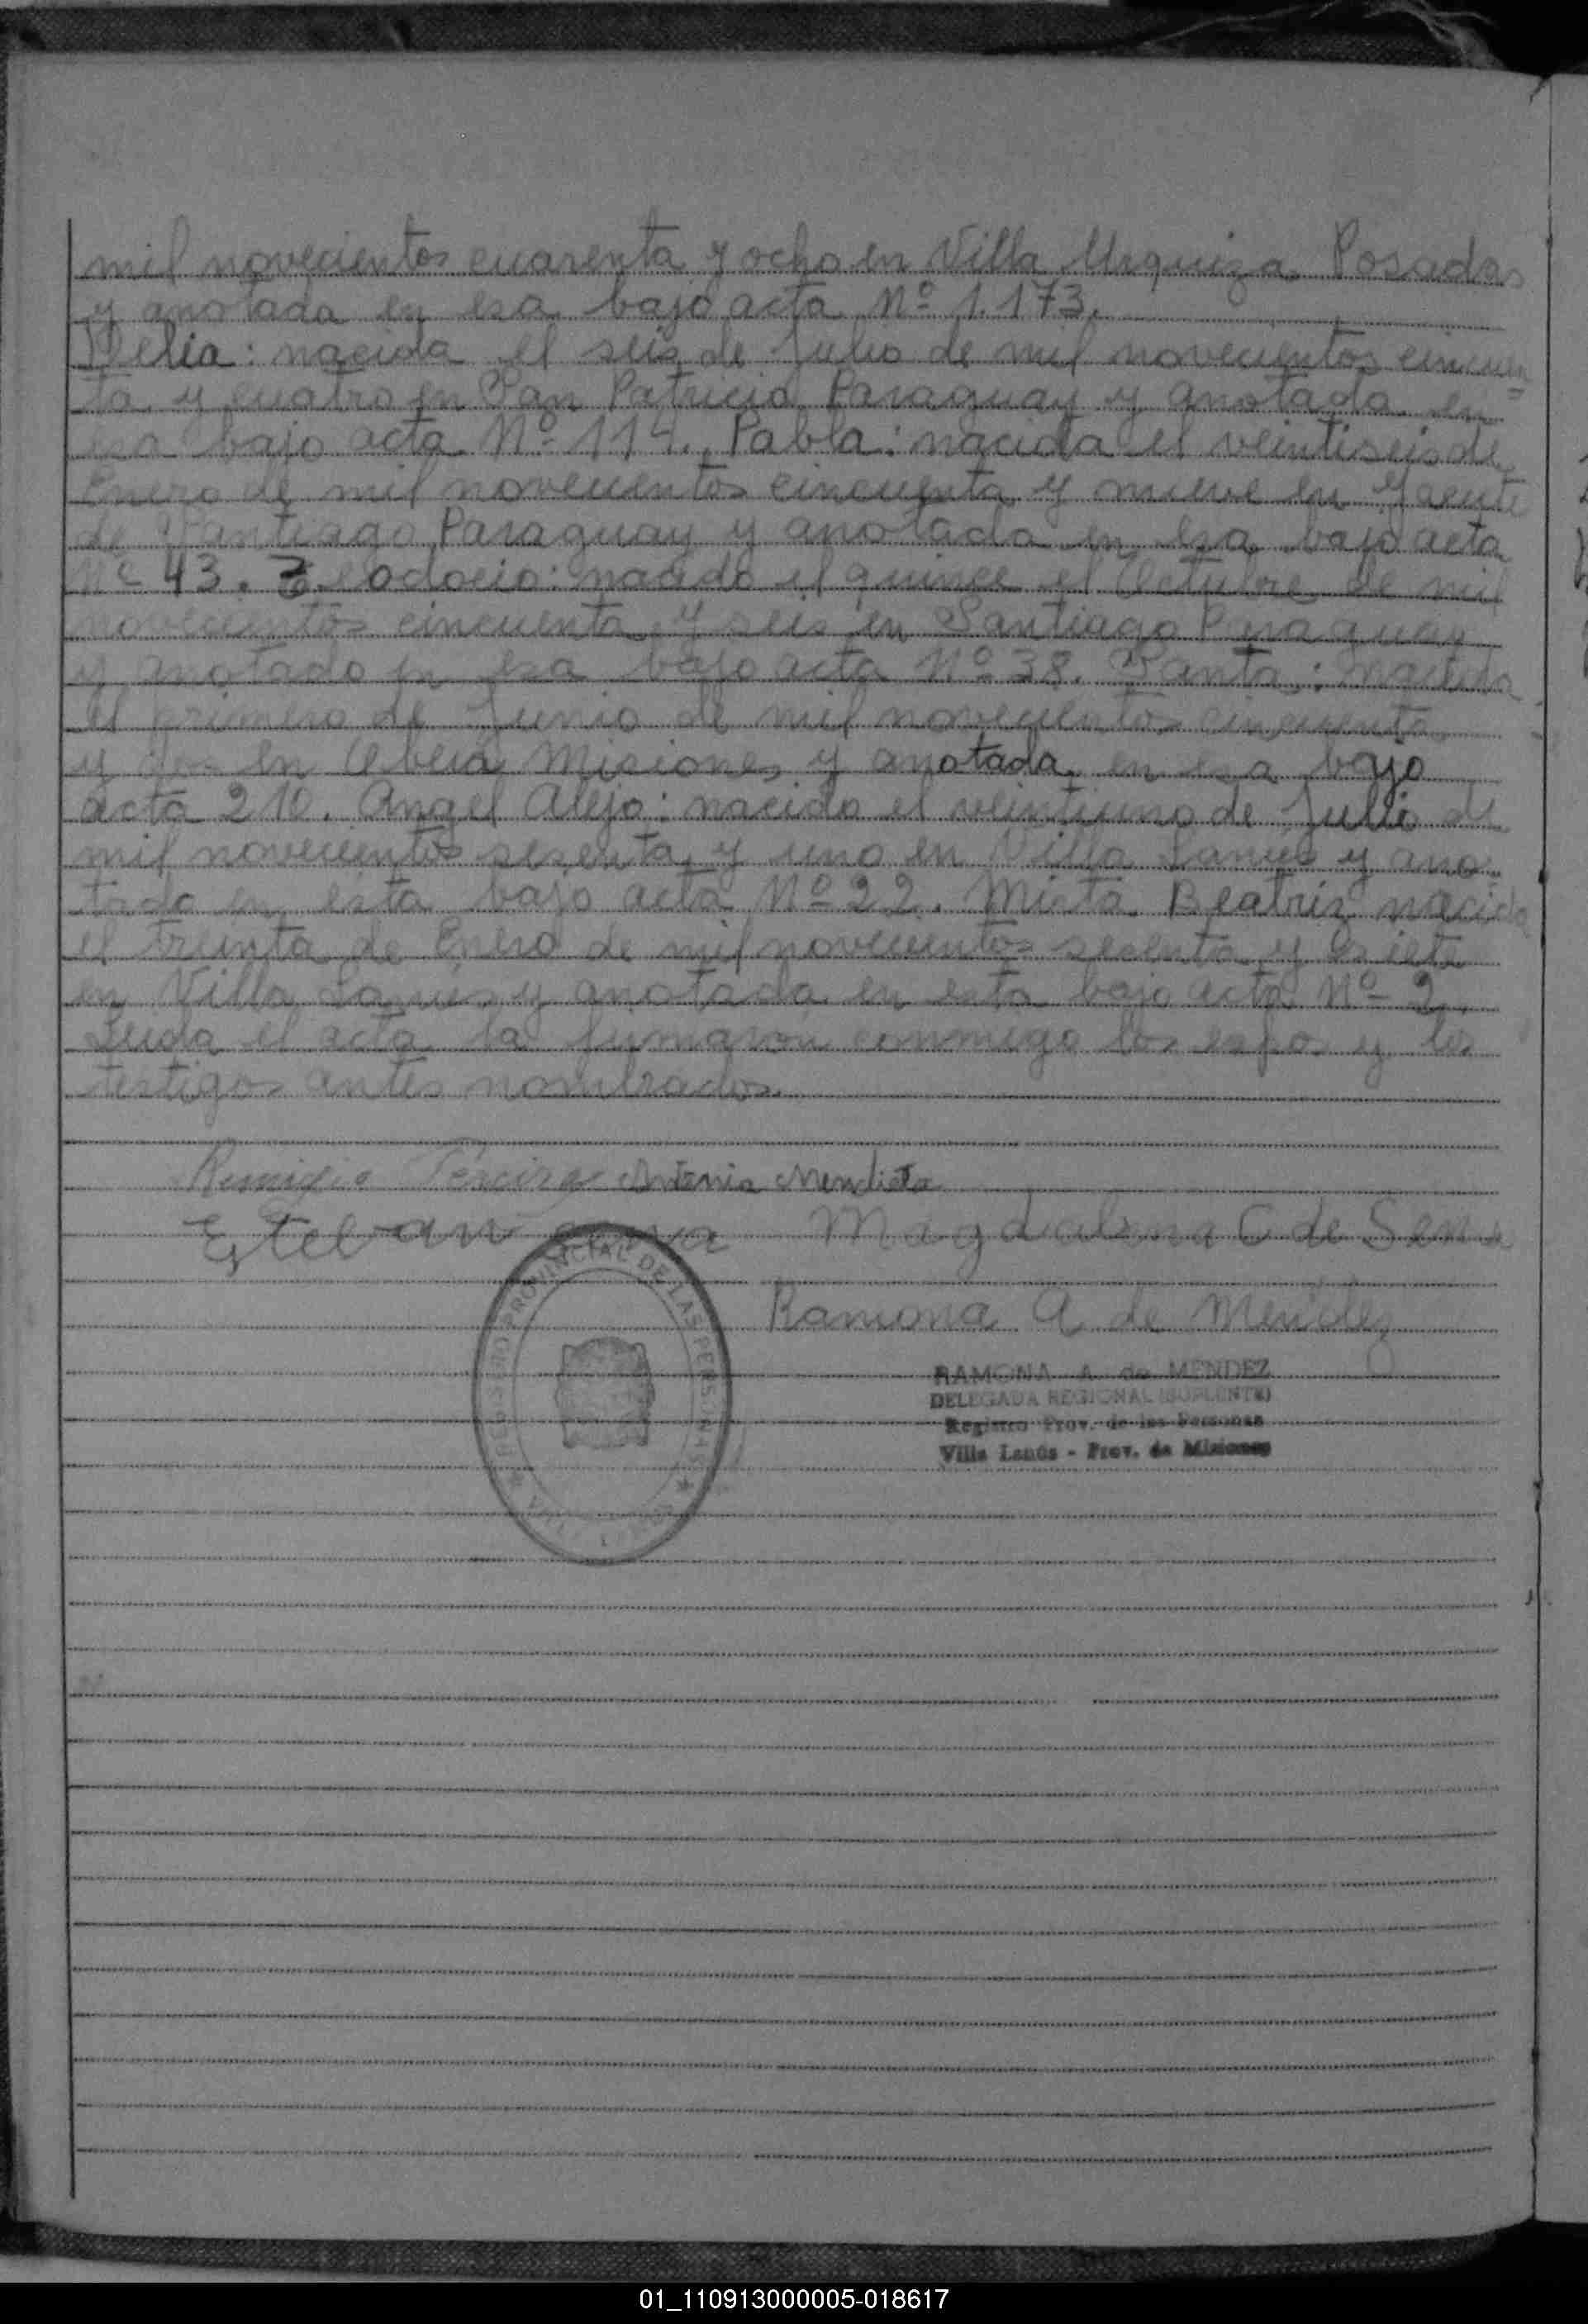 mil novecientos cuarenta y ocho en Villa Urquiza Posadas
y anotada en esa bajo acta Nº 1.173.
Delia: nacida el seis de Julio de mil novecientos cincuen
ta y cuatro en San Patricio Paraguay y anotada en
esa bajo acta Nº 114. Pabla: nacida el veintiseis de
Enero de mil novecientos cincuenta y nueve en
de Santiago Paraguay y anotada en esa bajo acta
Nº 43. nacido el quince el Octubre de mil
novecientos cincuenta y seis en Santiago Paraguay
y anotado en esa bajo acta Nº 38. Santa: nacida
el primero de Junio de mil novecientos cincuenta
y dos en Oberá Misiones y anotada en esa bajo
acta 210. Angel Alejo: nacido el veintiuno de Julio de
mil novecientos sesenta y uno en Villa Lanus y ano
tado en esta bajo acta Nº 22. Mirta Beatriz nacida
el treinta de Enero de mil novecientos sesenta y siete
en Villa Lanus y anotada en esta bajo acta Nº 2.
Leida el acta la firmaron conmigo los espos y los
testigos antes nombrados.
Remigio Antonia Mendieta
Esteban Magdalena C de Sena
Ramona A de Mendez
REGISTRO PROVINCIAL DE LAS PERSONAS
RAMONA A. de MENDEZ
DELEGADA REGIONAL (SUPLENTE)
Registro Prov. de las Personas
Villa Lanús - Prov. de Misiones
01_110913000005-018617